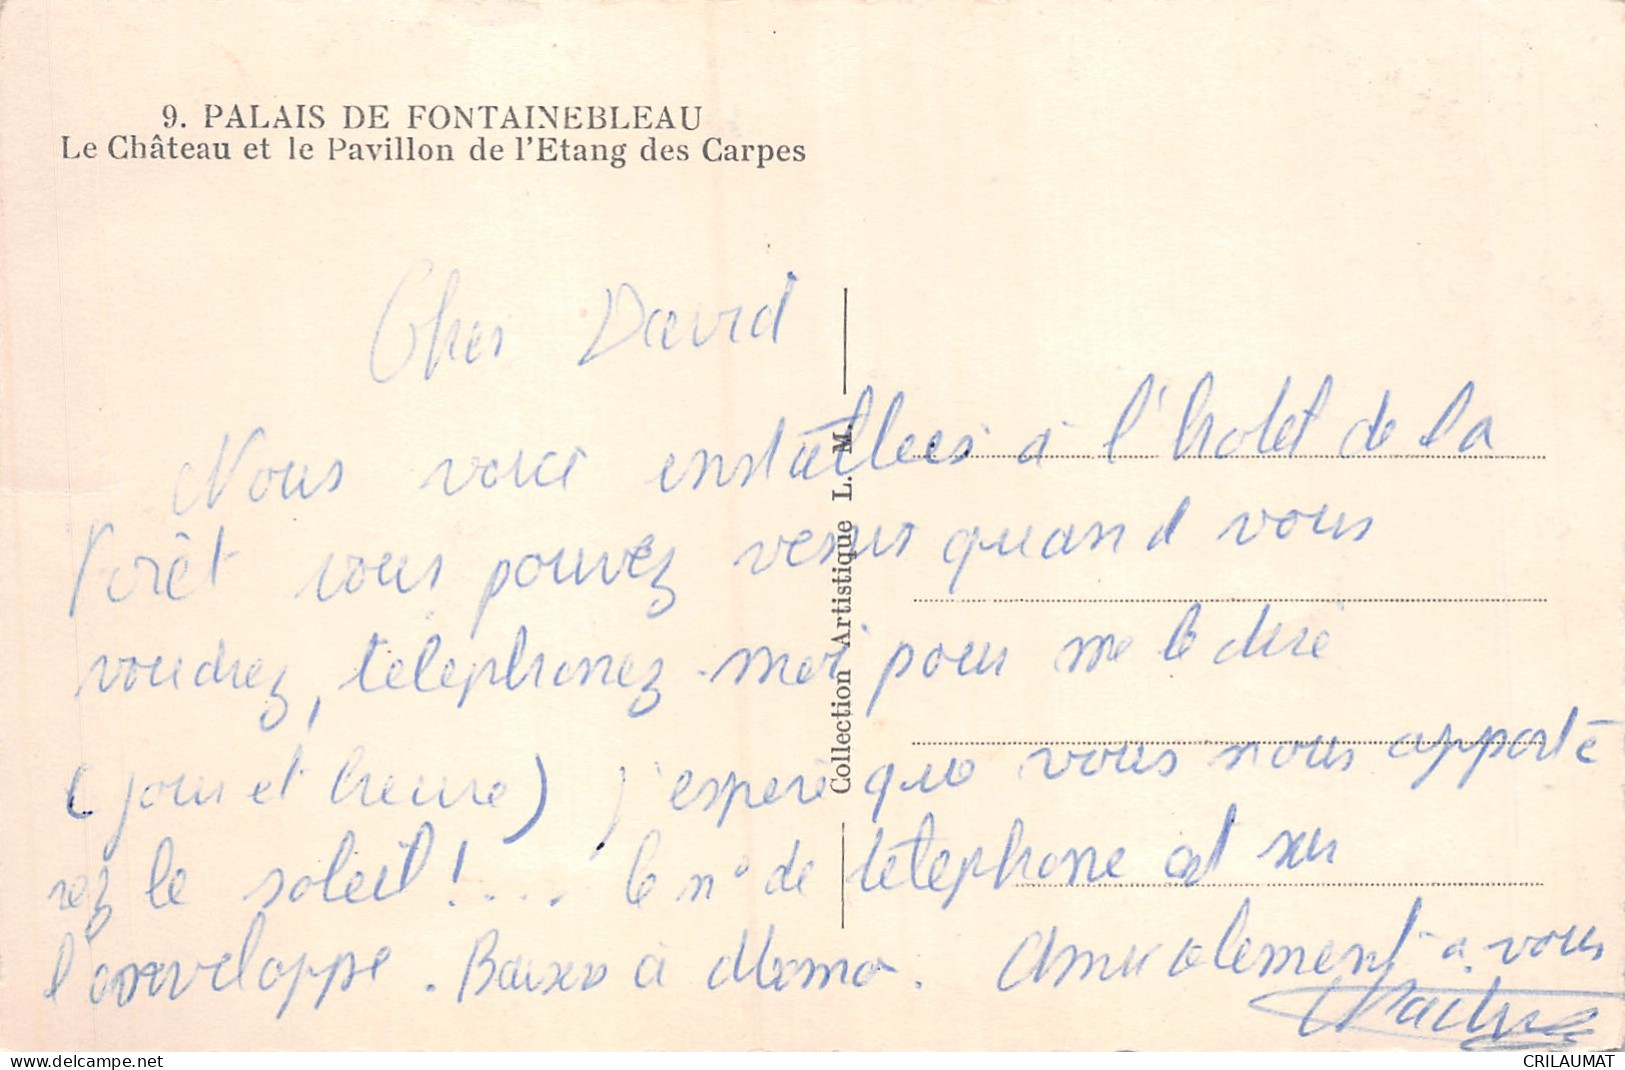 9. PALAIS DE FONTAINEBLEAU
Le Château et le Pavillon de l'Etang des Carpes
Collection Artistique L. M.
Cher David
Nous voici installees à l'hotel de la
Forêt vous pouvez venir quand vous
voudrez, telephonez-moi pour me le dire
(jour et heure) j'espere que vous nous apporte
rez le soleil !.... le n° de telephone est sur
l'enveloppe. Baiser à Mema. Amicalement à vous
www.delcampe.net
CRILAUMAT